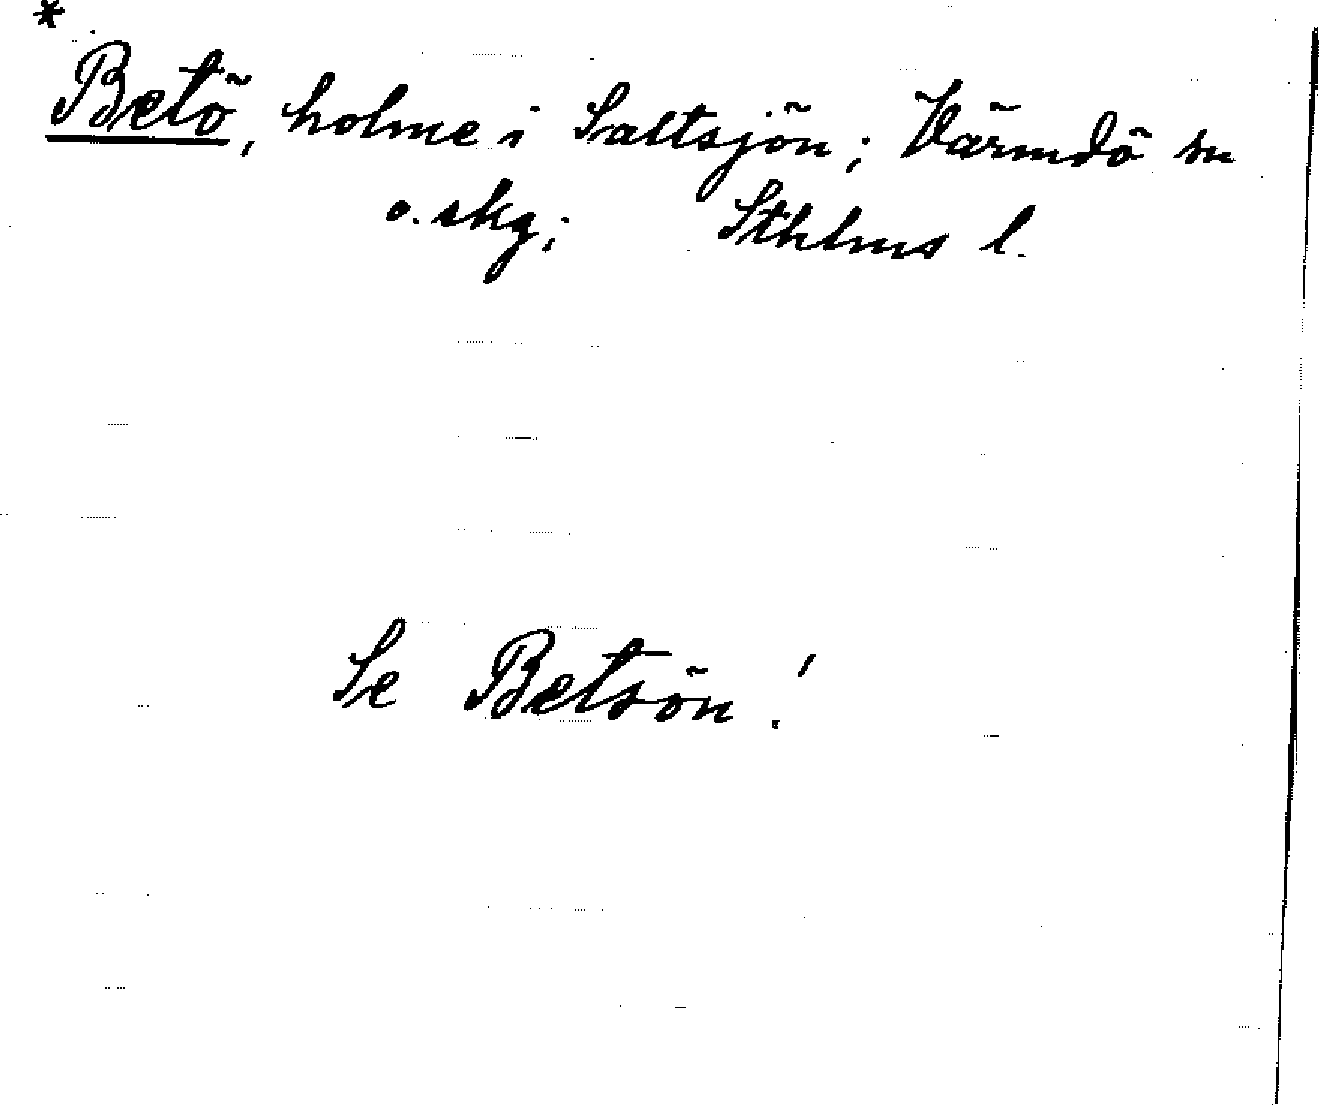 *
Betö, holme i Saltsjön; Värmdö sn
o. skg; Sthlms l.
Se Betsön!